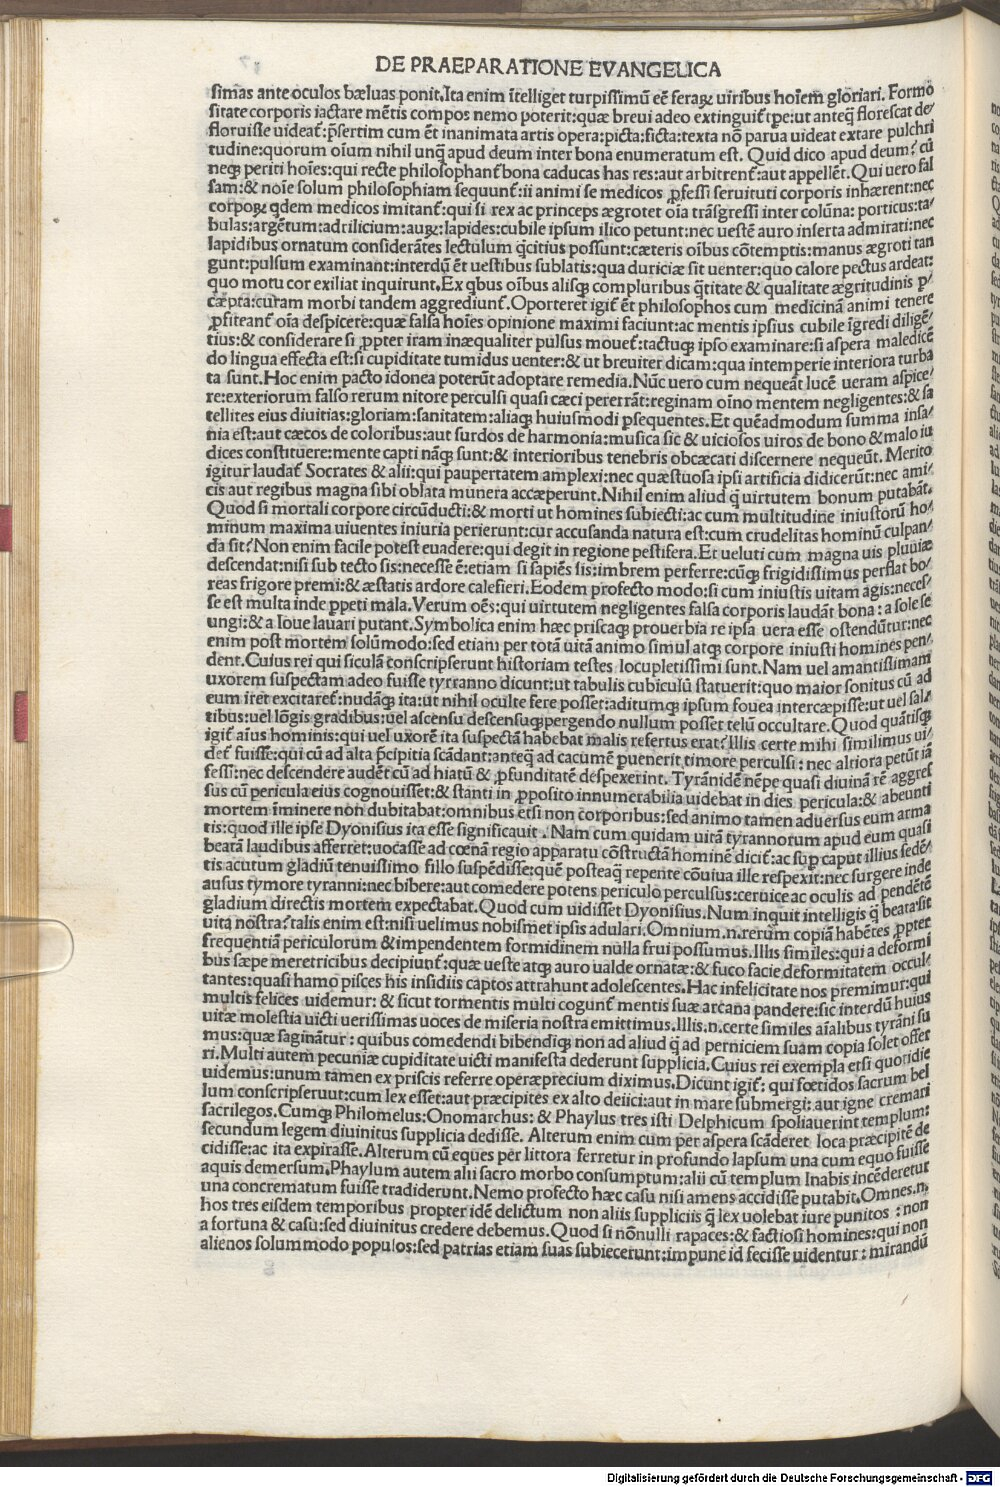 DE PRAEPARATIONE EVANGELICA
simas ante oculos bæluas ponit. Ita enim ītelliget turpissimū eē feraꝝ uiribus hoīem gloriari. Formo
sitate corporis iactare mētis compos nemo poterit: quæ breui adeo extinguit᷑ tp̄e: ut anteq̄ florescat de/
floruisse uideat᷑: p̄sertim cum ēt inanimata artis opera: picta: ficta: texta nō parua uideat extare pulchri
tudine: quorum oīum nihil unq̄ apud deum inter bona enumeratum est. Quid dico apud deum? cū
neqꝫ periti hoīes: qui recte philosophant᷑ bona caducas has res: aut arbitrent᷑: aut appellēt. Qui uero fal
sam: & noīe solum philosophiam sequunt᷑: ii animi se medicos ꝓfessi seruituti corporis inhærent: nec
corporꝝ qdem medicos imitant᷑: qui si rex ac princeps ægrotet oīa trāsgressi inter colūna: porticus: ta/
bulas: argētum: adrilicium: auꝝ: lapides: cubile ipsum ilico petunt: nec uestē auro inserta admirati: nec
lapidibus ornatum considerātes lectulum q̄citius possunt: cæteris oībus cōtemptis: manus ægroti tan
gunt: pulsum examinant: interdū ēt uestibus sublatis: qua duriciæ sit uenter: quo calore pectus ardeat:
quo motu cor exiliat inquirunt. Ex qbus oībus aliisqꝫ compluribus q̄titate & qualitate ægritudinis p/
cæpta: curam morbi tandem aggrediunt᷑. Oporteret igit᷑ ēt philosophos cum medicinā animi tenere
ꝓfiteant᷑ oīa despicere: quæ falsa hoīes opinione maximi faciunt: ac mentis ipsius cubile īgredi diligē/
tius: & considerare si ꝓpter iram inæqualiter pulsus mouet᷑: tactuqꝫ ipso examinare: si aspera maledicē
do lingua effecta est: si cupiditate tumidus uenter: & ut breuiter dicam: qua intemperie interiora turba
ta sunt. Hoc enim pacto idonea poterūt adoptare remedia. Nūc uero cum nequeāt lucē ueram aspice/
re: exteriorum falso rerum nitore perculsi quasi cæci pererrāt: reginam oīno mentem negligentes: & sa
tellites eius diuitias: gloriam: sanitatem: aliaqꝫ huiusmodi psequentes. Et quēadmodum summa insa/
nia est: aut cæcos de coloribus: aut surdos de harmonia: musica sic & uiciosos uiros de bono & malo iu
dices constituere: mente capti nāqꝫ sunt: & interioribus tenebris obcæcati discernere nequeūt. Merito
igitur laudat᷑ Socrates & alii: qui paupertatem amplexi: nec quæstuosa ipsi artificia didicerūt: nec ami/
cis aut regibus magna sibi oblata munera accæperunt. Nihil enim aliud q̄ uirtutem bonum putabāt.
Quod si mortali corpore circūducti: & morti ut homines subiecti: ac cum multitudine iniustorū ho/
minum maxima uiuentes iniuria perierunt: cur accusanda natura est: cum crudelitas hominū culpan/
da sit? Non enim facile potest euadere: qui degit in regione pestifera. Et ueluti cum magna uis pluuiæ
descendat: nisi sub tecto sis: necesse ē: etiam si sapiēs sis: imbrem perferre: cūqꝫ frigidissimus perflat bo/
reas frigore premi: & æstatis ardore calefieri. Eodem profecto modo: si cum iniustis uitam agis: neces/
se est multa inde ꝑpeti mala. Verum oēs: qui uirtutem negligentes falsa corporis laudāt bona: a sole se
ungi: & a Ioue lauari putant. Symbolica enim hæc priscaqꝫ prouerbia re ipsa uera esse ostendūtur: nec
enim post mortem solūmodo: sed etiam per totā uitā animo simul atqꝫ corpore iniusti homines pen/
dent. Cuius rei qui siculā conscripserunt historiam testes locupletissimi sunt. Nam uel amantissimam
uxorem suspectam adeo fuisse tyrranno dicunt: ut tabulis cubiculū statuerit: quo maior sonitus cū ad
eum iret excitaret᷑: nudāqꝫ ita: ut nihil oculte fere posset: aditumqꝫ ipsum fouea intercæpisse: ut uel sal/
tibus: uel lōgis gradibus: uel ascensu descensuqꝫ pergendo nullum posset telū occultare. Quod quātisqꝫ
igit᷑ aīus hominis: qui uel uxorē ita suspectā habebat malis refertus erat? Illis certe mihi similimus ui/
det᷑ fuisse: qui cū ad alta p̄cipitia scādant: anteq̄ ad cacumē puenerit, timore perculsi: nec altiora petūt iā
fessi: nec descendere audēt cū ad hiatū & ꝓfunditatē despexerint. Tyrānidē nēpe quasi diuinā rē aggres
sus cū pericula eius cognouisset: & stanti in ꝓposito innumerabilia uidebat in dies pericula: & abeunti
mortem īminere non dubitabat: omnibus etsi non corporibus: sed animo tamen aduersus eum arma
tis: quod ille ipse Dyonisius ita esse significauit. Nam cum quidam uitā tyrannorum apud eum quasi
beatā laudibus afferret: uocasse ad cœnā regio apparatu cōstructā hominē dicit᷑: ac sup caput illius sedē/
tis acutum gladiū tenuissimo fillo suspēdisse: quē posteaq̄ repente cōuiua ille respexit: nec surgere inde
ausus tymore tyranni: nec bibere: aut comedere potens periculo perculsus: ceruice ac oculis ad pendētē
gladium directis mortem expectabat. Quod cum uidisset Dyonisius. Num inquit intelligis q̄ beata sit
uita nostra? talis enim est: nisi uelimus nobismet ipsis adulari. Omnium .n. rerum copiā habētes ꝓpter
frequentiā periculorum & impendentem formidinem nulla frui possumus. Illis similes: qui a deformi
bus sæpe meretricibus decipiunt᷑: quæ ueste atqꝫ auro ualde ornatæ: & fuco facie deformitatem occul/
tantes: quasi hamo pisces his insidiis captos attrahunt adolescentes. Hac infelicitate nos premimur: qui
multis felices uidemur: & sicut tormentis multi cogunt᷑ mentis suæ arcana pandere: sic interdū huius
uitæ molestia uicti uerissimas uoces de miseria nostra emittimus. Illis .n. certe similes aīalibus tyrāni su
mus: quæ saginātur: quibus comedendi bibendiqꝫ non ad aliud q̄ ad perniciem suam copia solet offer
ri. Multi autem pecuniæ cupiditate uicti manifesta dederunt supplicia. Cuius rei exempla etsi quotidie
uidemus: unum tamen ex priscis referre operæprecium diximus. Dicunt igit᷑: qui fœtidos sacrum bel
lum conscripseruut: cum lex esset: aut præcipites ex alto deiici: aut in mare submergi: aut igne cremari
sacrilegos. Cumqꝫ Philomelus: Onomarchus: & Phaylus tres isti Delphicum spoliauerint templum:
secundum legem diuinitus supplicia dedisse. Alterum enim cum per aspera scāderet loca præcipitē de
cidisse: ac ita expirasse. Alterum cū eques per littora ferretur in profundo lapsum una cum equo fuisse
aquis demersum. Phaylum autem alii sacro morbo consumptum: alii cū templum Inabis incēderetur
una concrematum fuisse tradiderunt. Nemo profecto hæc casu nisi amens accidisse putabit. Omnes .n.
hos tres eisdem temporibus propter idē delictum non aliis suppliciis q̄ lex uolebat iure punitos: non
a fortuna & casu: sed diuinitus credere debemus. Quod si nōnulli rapaces: & factiosi homines: qui non
alienos solummodo populos: sed patrias etiam suas subiecerunt: impune id fecisse uidentur: mirandū
Digitalisierung gefördert durch die Deutsche Forschungsgemeinschaft - DFG